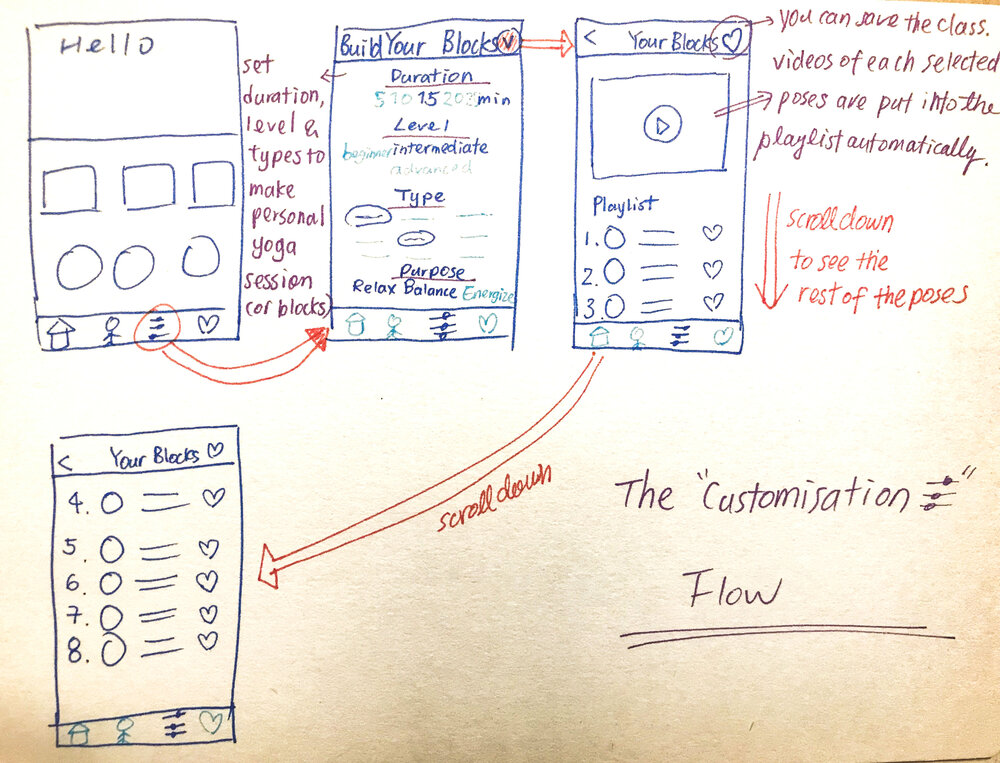 Hello
set
duration,
level &
types to
make
personal
yoga
session
(or blocks)
Build Your Blocks
Duration
5 10 15 20 25 min
Level
beginner intermediate
advanced
Type
Purpose
Relax Balance Energize
< Your Blocks
Playlist
1.
2.
3.
you can save the class.
videos of each selected
poses are put into the
playlist automatically.
scroll down
to see the
rest of the poses
scroll down
< Your Blocks
4.
5.
6.
7.
8.
The "Customisation "
Flow